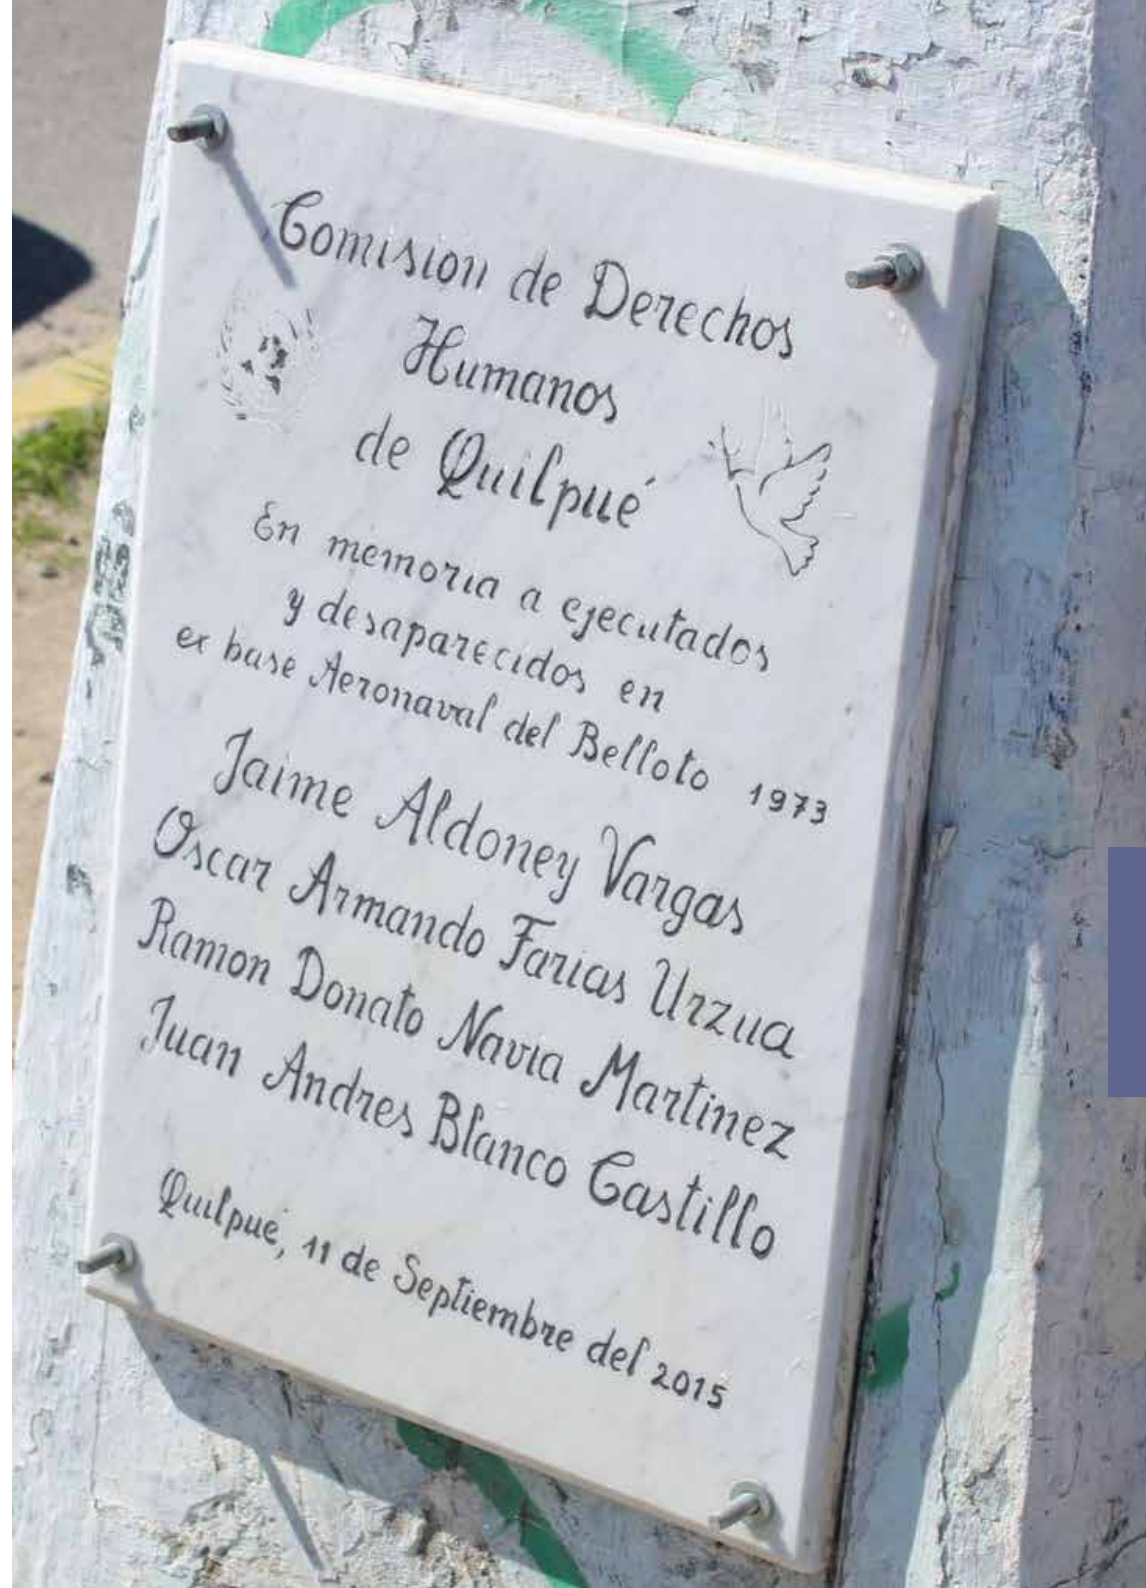 Comision de Derechos
Humanos
de Quilpué
En memoria a ejecutados
y desaparecidos en
ex base Aeronaval del Belloto 1973
Jaime Aldoney Vargas
Oscar Armando Farias Urzua
Ramon Donato Navia Martinez
Juan Andres Blanco Castillo
Quilpué, 11 de Septiembre del 2015